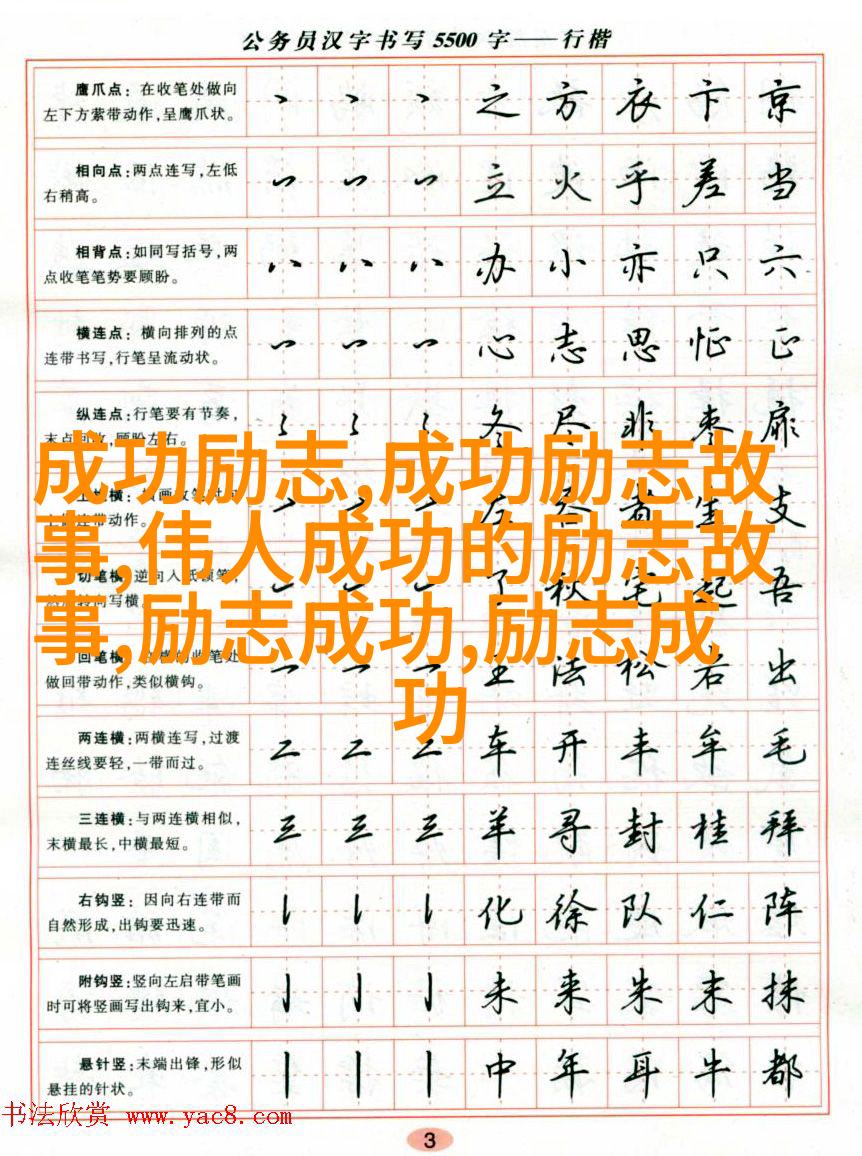 公务员汉字书写 5500 字——行楷
鹰爪点：在收笔处做向
左下方萦带动作,呈鹰爪状。
之 方 衣 卞 京
相向点：两点连写,左低
右稍高。
立 火 乎 差 当
相背点：如同写括号,两
点收笔笔势要顾盼。
办 小 亦 只 六
横连点：横向排列的点
连带书写,行笔呈流动状。
心 志 思 怔 正
纵连点：行笔要有节奏,
末点回收,顾盼左右。
冬 尽 非 枣 扉
成功励志,成功励志故
事,伟人成功的励志故
事,励志成功,励志成
功
动作。
左 春 者 生 支
切笔横：逆向入纸顿笔,
写横。
了 秋 宅 起 吾
回笔横：收笔处
做回带动作,类似横钩。
王 法 松 若 出
两连横：两横连写,过渡
连丝线要轻,一带而过。
车 开 丰 牟 毛
三连横：与两连横相似,
末横最长,中横最短。
羊 寻 封 桂 拜
右钩竖：因向右连带而
自然形成,出钩要迅速。
化 徐 队 仁 阵
附钩竖：竖向左启带笔画
时可将竖画写出钩来,宜小。
未 来 朱 末 抹
悬针竖：末端出锋,形似
悬挂的针状。
中 年 耳 牛 都
书法欣赏 www.yac8.com
3